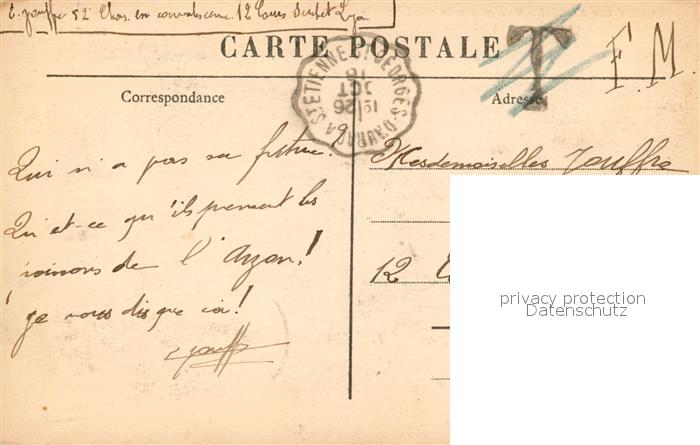 E. Jouffre 52e Chas. en convalescence. 12 Cours Suchet Lyon
CARTE POSTALE
T
F. M.
Correspondance
Adresse
ST ETIENNE A ST GEORGES-D'AURAC
18
OCT
26
Qui n'a pas sa
Qui est-ce qu'ils prennent les
de l'
je vous dis que
Jouffre
Mesdemoiselles Jouffre
12
privacy protection
Datenschutz